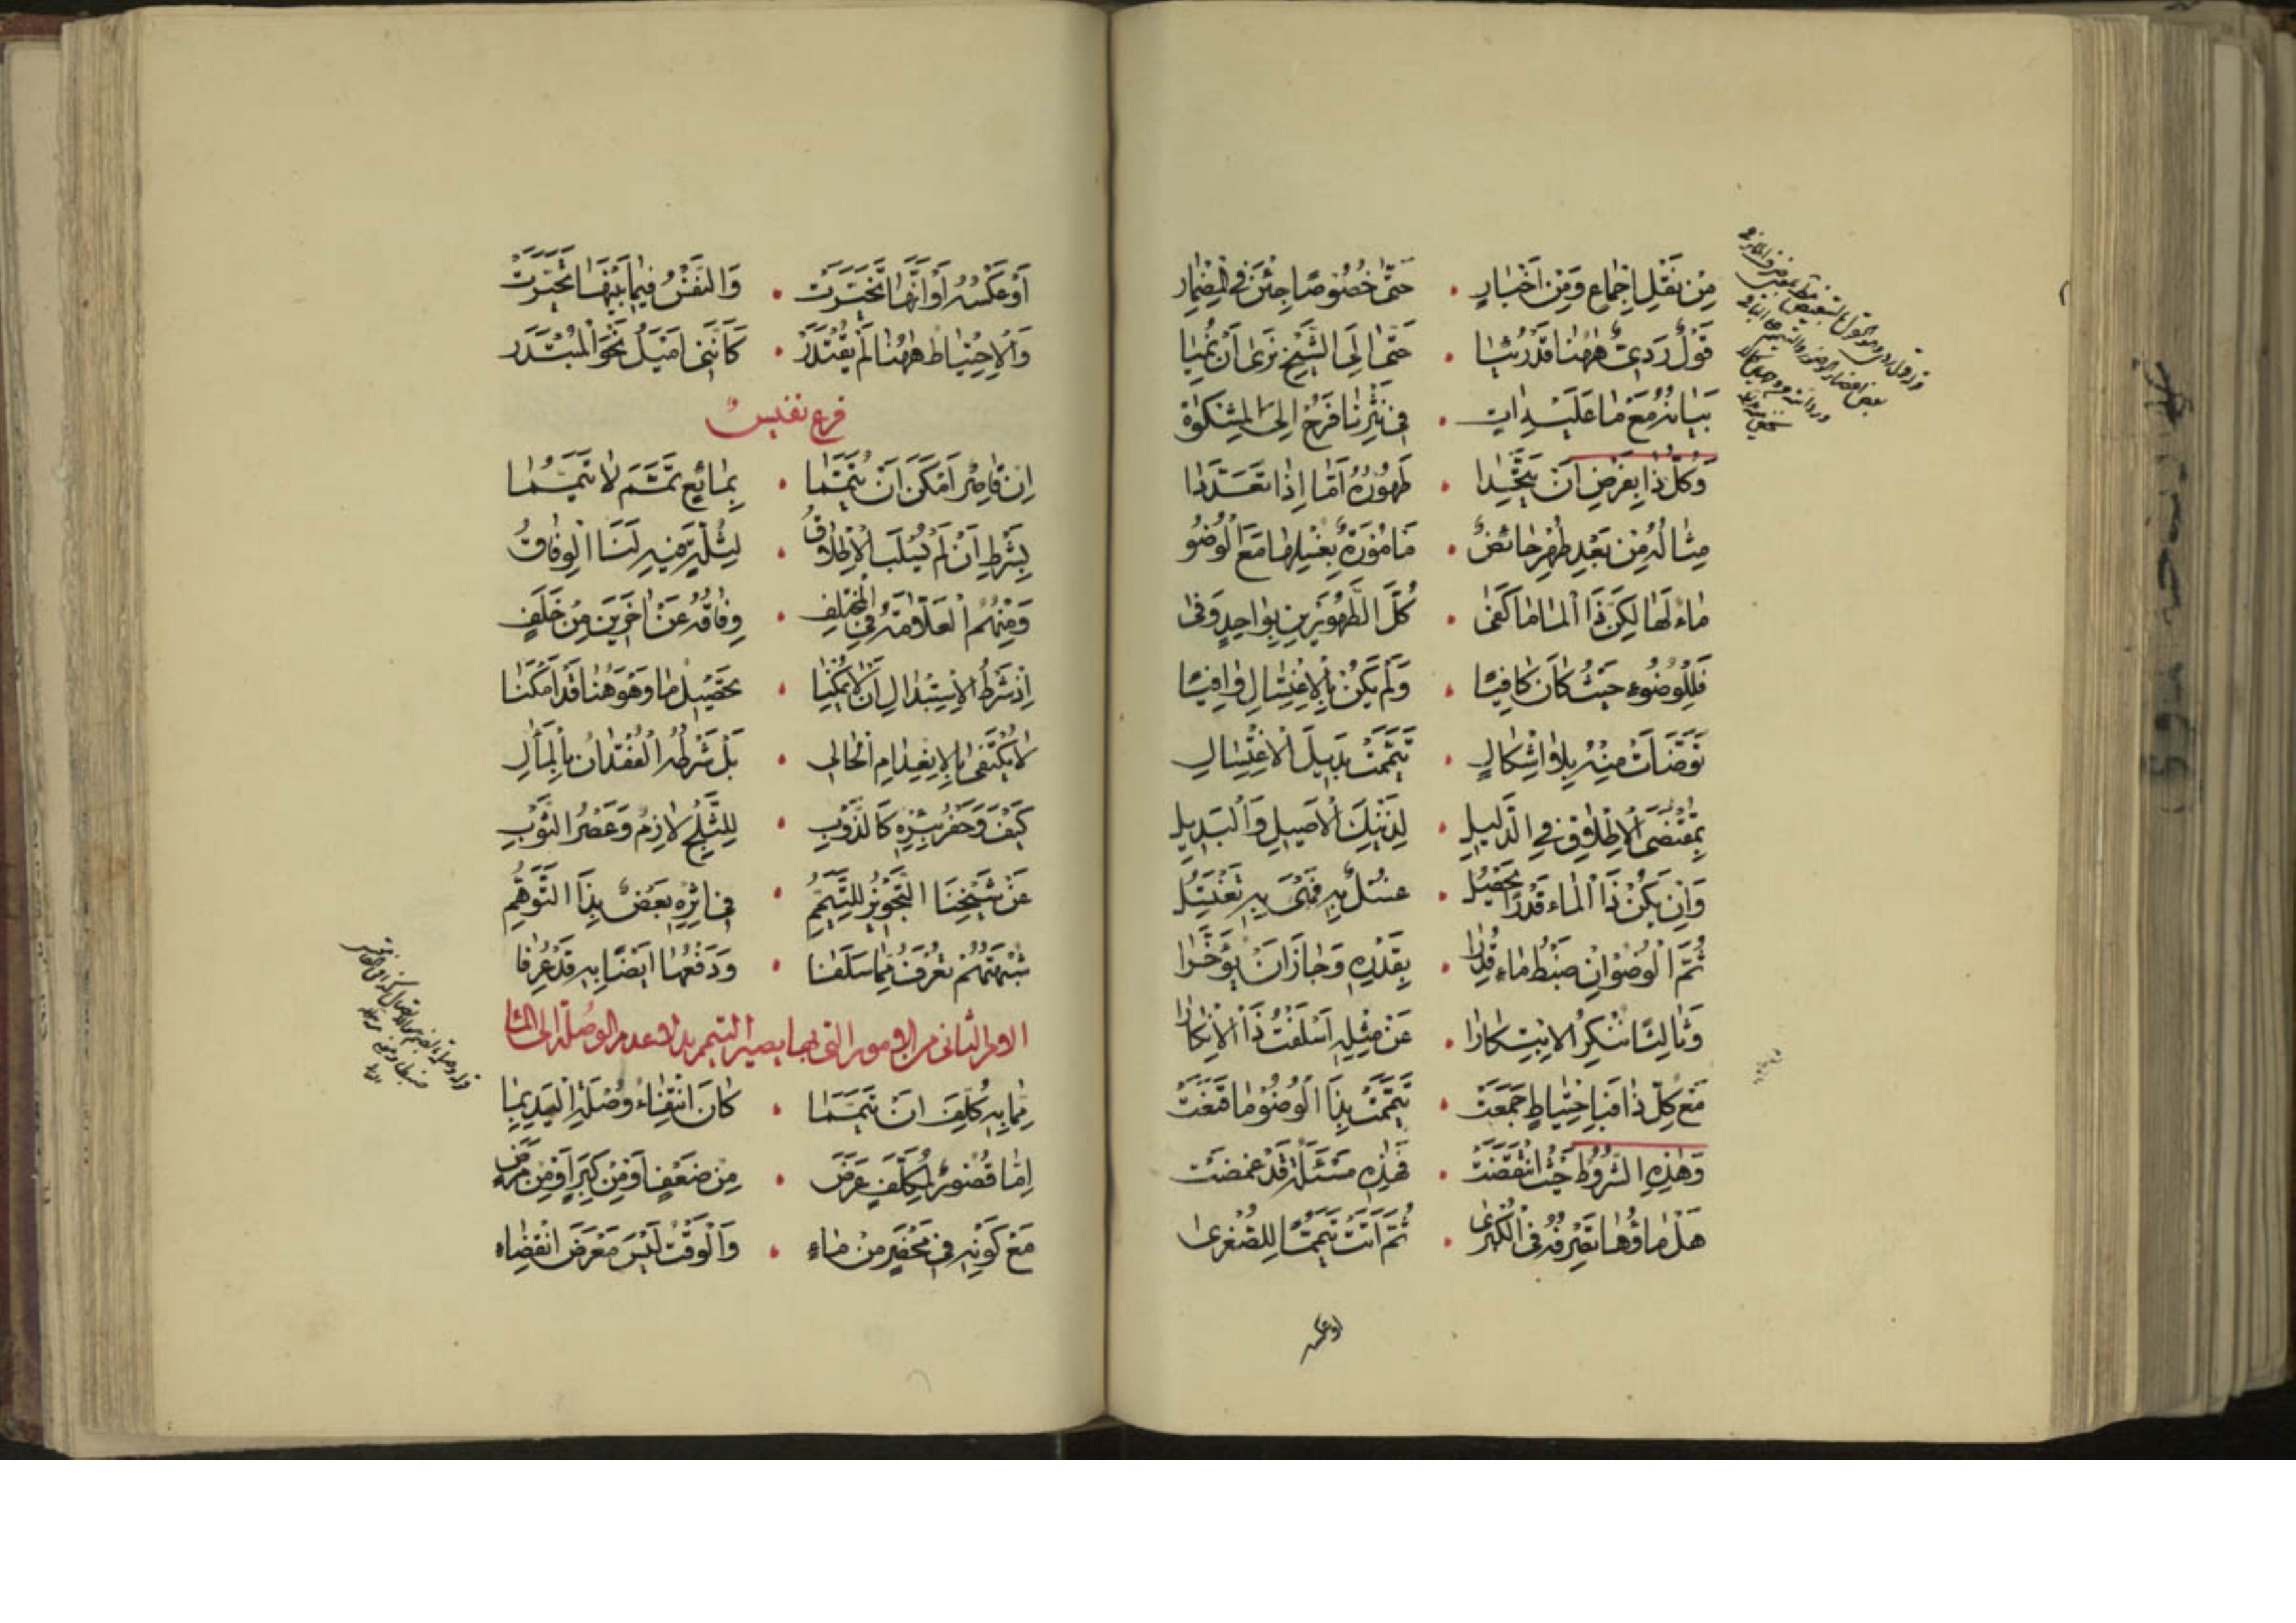 مِنْ نَقْلِ اِجْمَاعٍ وَمِنْ اَخْبَارٍ • حَتّٰى خُصُوصًا جِئْنَ فِي الْمِضْمَارِ
قَوْلٌ رَدِيٌّ هٰهُنَا قَدْ رُئِيَا • حَتّٰى اِلَى الشَّيْخِ نَرٰى اَنْ نُمِيَا
بَيَانُهُ مَعَ مَا عَلَيْهِ اٰتٍ • فِي نَثْرِنَا فَرُحْ اِلَى الْمِشْكٰوةِ
وَكُلُّ ذَا بِفَرْضِ اَنْ يَتَّحِدَا • طَهُورُهُ اَمَّا اِذَا تَعَدَّدَا
مِثَالُهُ مِنْ بَعْدِ طُهْرٍ حَائِضٌ • مَامُورَةٌ بِغُسْلِهَا مَعَ الْوُضُو
مَاءٌ لَهَا لٰكِنَّ ذَا الْمَا مَا كَفٰى • كُلَّ الطَّهُورَيْنِ بِوَاحِدٍ وَفٰى
فَلِلْوُضُوءِ حَيْثُ كَانَ كَافِيًا • وَلَمْ يَكُنْ بِالْاِغْتِسَالِ وَافِيًا
تَوَضَّأَتْ مِنْهُ بِلَا اِشْكَالٍ • تَيَمَّمَتْ بَدِيلَ الْاِغْتِسَالِ
بِمُقْتَضَى الْاِطْلَاقِ فِي الدَّلِيلِ • لِذَيْنِكَ الْاَصِيلِ وَالْبَدِيلِ
وَاِنْ يَكُنْ ذَا الْمَاءِ قَدْرًا يَحْصُلُ • غُسْلٌ بِهِ فَهْيَ بِهِ تَغْتَسِلُ
ثُمَّ الْوُضُو اِنْ ضَبْطُ مَاءٍ قُدِّرَا • بِقَدْرِهِ وَجَازَ اَنْ يُؤَخَّرَا
وَثَالِثًا نُنْكِرُ الْابْتِكَارَا • عَنْ مِثْلِهِ اَسْلَفْتُ ذَا الْاِنْكَارَا
مَعَ كُلِّ ذَا فَبِاحْتِيَاطٍ جَمَعَتْ • تَيَمَّمَتْ بِذَا الْوُضُو مَا قَنَعَتْ
وَهٰذِهِ الشُّرُوطُ حَيْثُ انْتَقَضَتْ • فَهٰذِهِ مَسْئَلَةٌ قَدْ غَمُضَتْ
هَلْ مَاؤُهَا تَصْرِفُهُ فِي الْكُبْرٰى • ثُمَّ اَتَتْ تَيَمُّمًا لِلصُّغْرٰى
اوعكسه
اَوْ عَكْسُهُ اَوْ اَنَّهَا تَخَيَّرَتْ • وَالنَّفْسُ فِيمَا بَيْنَهَا تَحَيَّرَتْ
وَالْاِحْتِيَاطُ هٰهُنَا لَمْ يُقْتَدَرْ • كَاَنَّنِي اَمِيلُ نَحْوَ الْمُبْتَدَرْ
فرع نفيس
اِنْ قَاصِرٌ اَمْكَنَ اَنْ يُتَمَّمَا • بِمَائِعٍ تَمَّمَ لَا تَيَمَّمَا
بِشَرْطِ اَنْ لَمْ يُسْلَبِ الْاِطْلَاقُ • لِثُلَّةٍ فِيهِ لَنَا الْوِفَاقُ
وَمِنْهُمُ الْعَلَّامَةُ فِي الْمُخْتَلِفِ • وِفَاقُهُ عَنْ اٰخَرِينَ مِنْ خَلَفٍ
اِذْ شَرْطُ الْاِسْتِبْدَالِ اَنْ لَا يُمْكِنَا • تَحْصِيلُ مَا وَهُوَ هُنَا قَدْ اَمْكَنَا
لَا يُكْتَفٰى بِالْاِنْعِدَامِ الْحَالِي • بَلْ شَرْطُهُ الْفُقْدَانُ بِالْمَآلِ
كَيْفَ وَحَفْرُ بِئْرِهِ كَالذَّوْبِ • لِلثَّلْجِ لَازِمٌ وَعَصْرُ الثَّوْبِ
عَنْ شَيْخِنَا التَّجْوِيزُ لِلتَّيَمُّمِ • فِي اِثْرِهِ بَعْضٌ بِذَا التَّوَهُّمِ
شُبْهَتُهُمْ تُعْرَفُ مِمَّا سَلَفَا • وَدَفْعُهَا اَيْضًا بِهِ قَدْ عُرِفَا
الامر الثانى من الامور التى بها يصير التيمم بدلا عدم الوصلة الى الماء
مِمَّا بِهِ كُلِّفَ اَنْ تَيَمَّمَا • كَانَ انْتِفَاءُ وُصْلَةِ الْيَدِ بِمَا
اِمَّا قُصُورٌ لِمُكَلَّفٍ عَرَضَ • مِنْ ضَعْفٍ اَوْ مِنْ كِبَرٍ اَوْ مِنْ مَرَضٍ
مَعَ كَوْنِهِ فِي مَحْضَرٍ مِنْ مَاءٍ • وَالْوَقْتُ لَيْسَ مَعْرَضَ انْقِضَاءِ